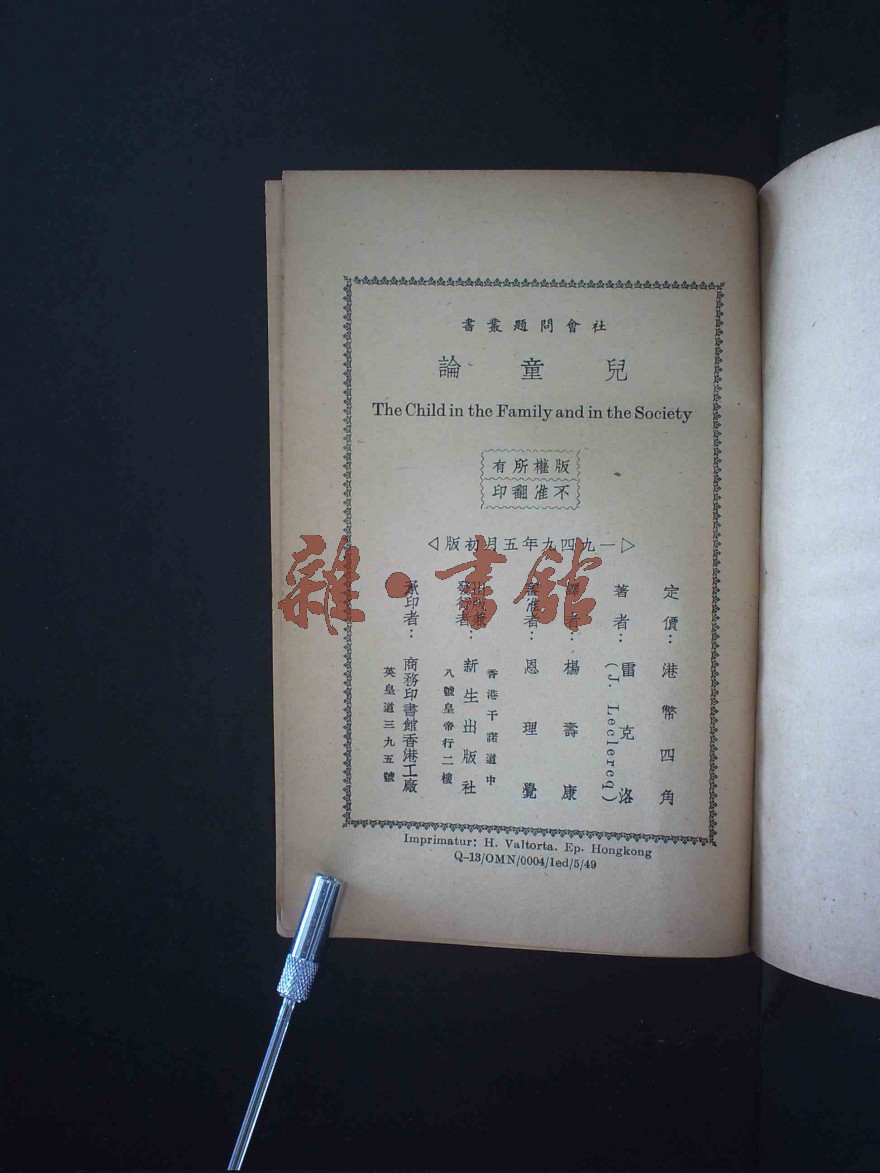 社會問題叢書
兒童論
The Child in the Family and in the Society
版權所有
不准翻印
▷一九四九年五月初版◁
定價：港幣四角
著者：雷克洛
(J. Leclercq)
譯者：楊壽康
審准者：恩理覺
出版兼
發行者：新生出版社
香港干諾道中
八號皇帝行二樓
承印者：商務印書館香港工廠
英皇道三九五號
Imprimatur: H. Valtorta. Ep. Hongkong
Q-13/OMN/0004/1ed/5/49
雜·書館